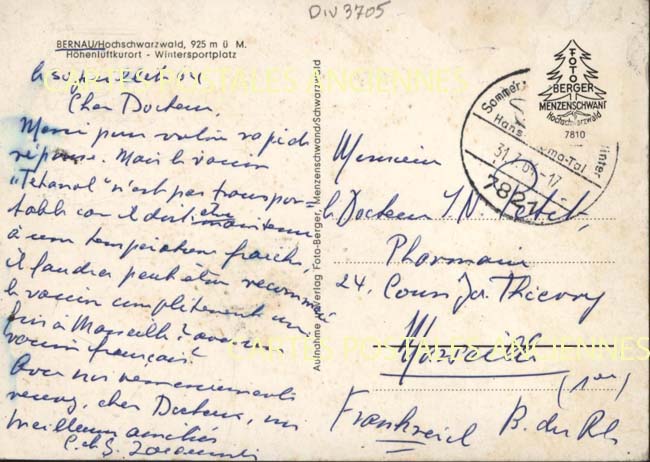 DIV 3705
BERNAU/Hochschwarzwald, 925 m ü M.
Höhenluftkurort - Wintersportplatz
Cher Docteur,
Merci pour votre rapide
réponse. Mais le vaccin
"Tétanol" n'est pas transpor-
table car il doit être maintenu
à une température fraîche,
il faudra peut être recommencer
le vaccin complètement une
fois à Marseille? avec
vaccin français?
Avec nos remerciements
recevez, cher Docteur, nos
meilleures amitiés
Aufnahme u. Verlag Foto-Berger, Menzenschwand/Schwarzwald
FOTO
BERGER
MENZENSCHWAND
Hochschwarzwald
7810
Sommer
Winter
Hans-Thoma-Tal
7821
Monsieur
le Docteur
Pharmacien
24, Cours Jh Thierry
Marseille
(1er)
Frankreich B. du Rh.
CARTES POSTALES ANCIENNES
CARTES POSTALES ANCIENNES